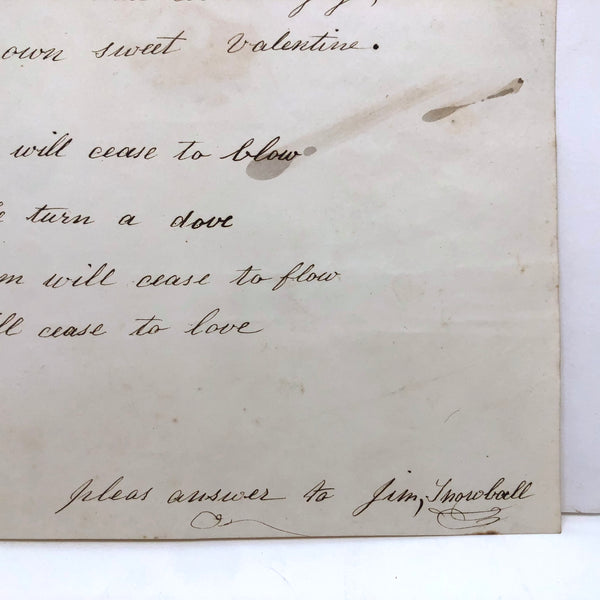 own sweet Valentine.
will cease to blow
turn a dove
will cease to flow
cease to love
pleas answer to Jim, Snowball